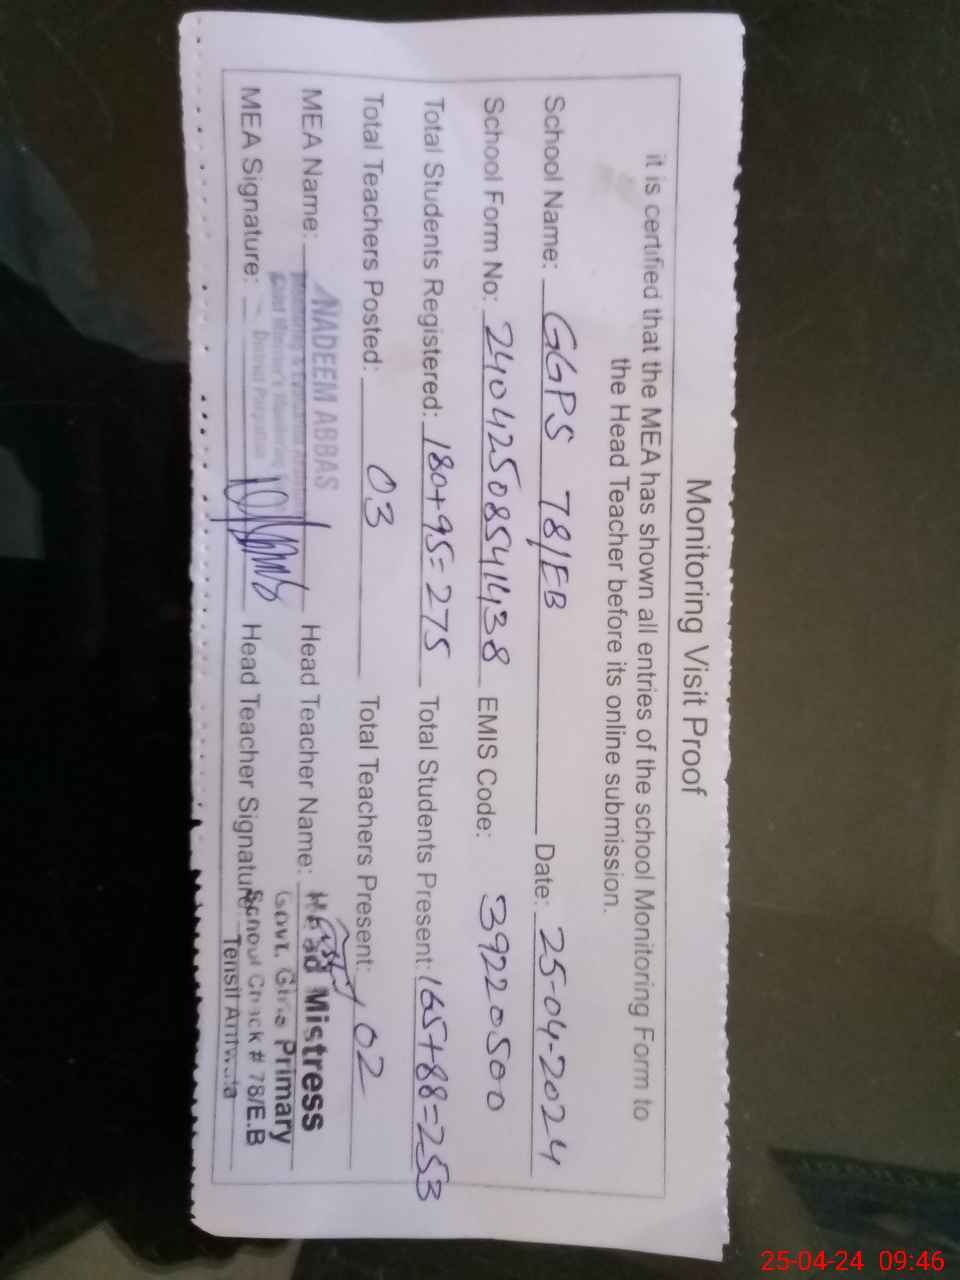 Monitoring Visit Proof
it is certified that the MEA has shown all entries of the school Monitoring Form to
the Head Teacher before its online submission.
School Name: GGPS 78/EB Date: 25-04-2024
School Form No: 24042508541438 EMIS Code: 39220500
Total Students Registered: 180+95=275 Total Students Present: 165+88=253
Total Teachers Posted: 03 Total Teachers Present: 02
MEA Name: NADEEM ABBAS Head Teacher Name: Head Mistress
Monitoring & Evaluation Assistant
Chief Minister's Monitoring
Govt. Girls Primary
MEA Signature: District Pakpattan Head Teacher Signature: School Chack # 78/E.B
Tehsil Arifwala
25-04-24 09:46